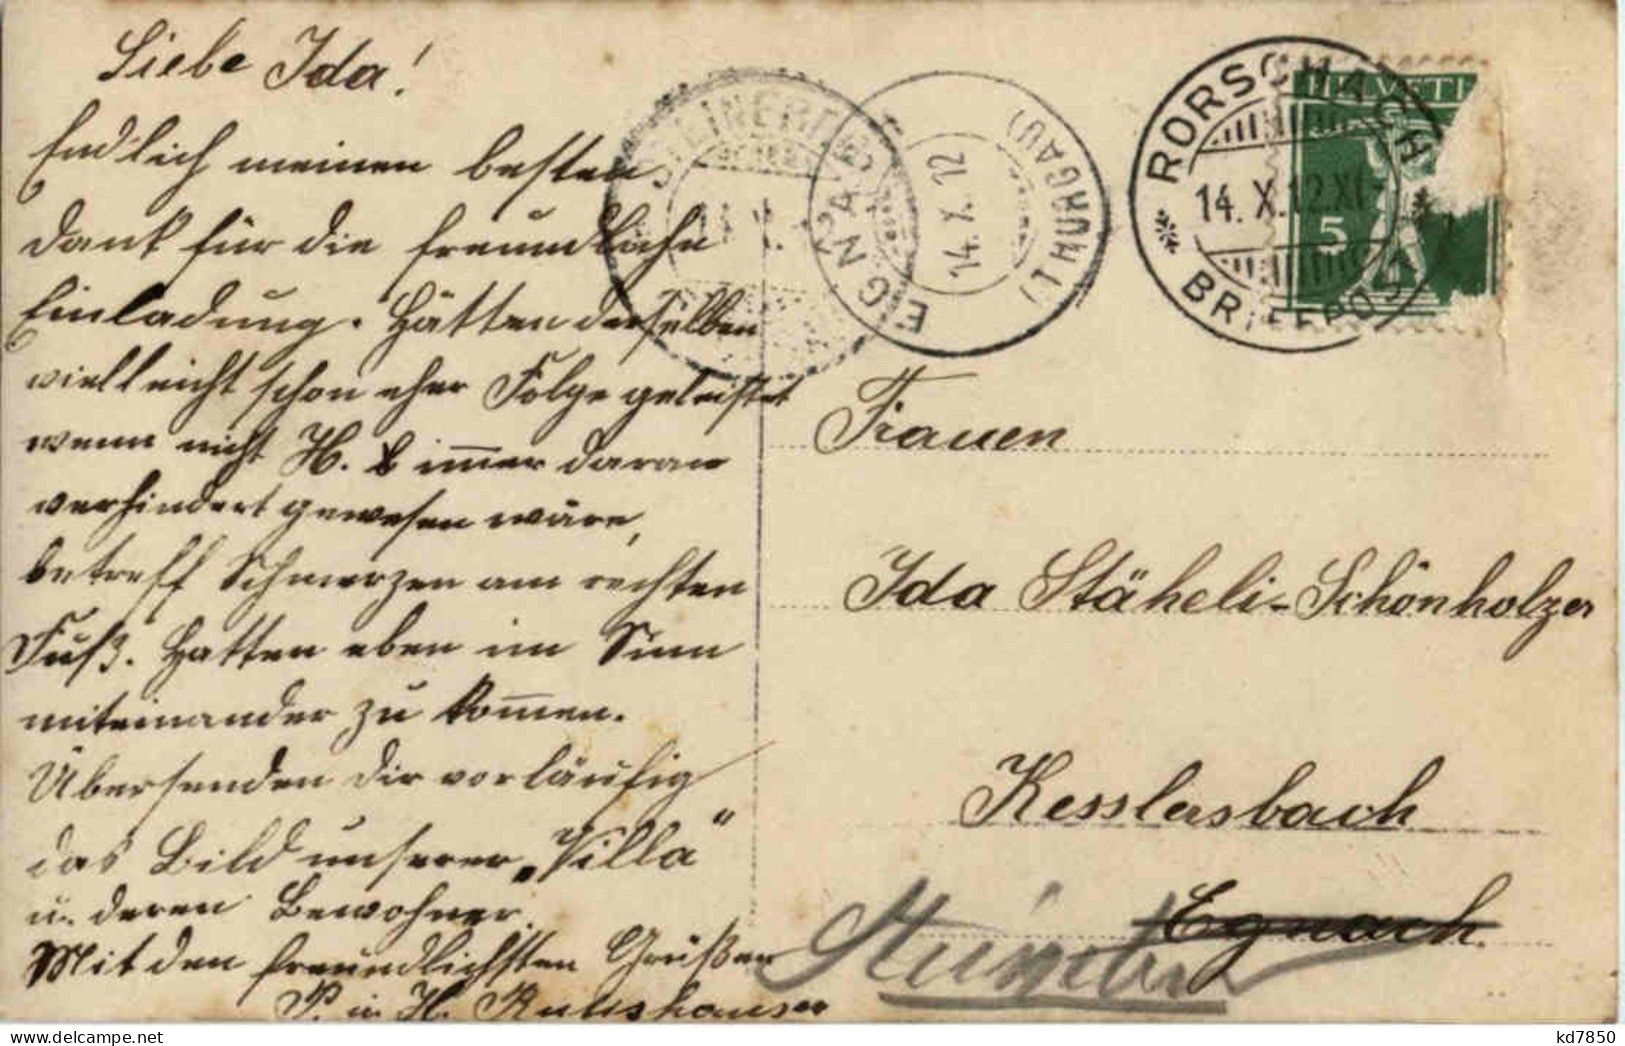 Liebe Ida!
Endlich meinen besten
Dank für die freundliche
Einladung. Hätten derselben
vielleicht schon eher Folge geleistet
wenn nicht H. immer daran
verhindert gewesen wäre,
betreff Schmerzen am rechten
Fuß. Hatten eben im Sinn
miteinander zu kommen.
Übersenden Dir vorläufig
das Bild unserer „Villa"
u. deren Bewohner.
Mit den freundlichsten Grüßen
P. u. H. Rutishauser
EGNACH
(THURGAU)
14.X.12
RORSCHACH
14.X.12.XI
BRIEFPOST
HELVETIA
5
Frauen
Ida Stäheli-Schönholzer
Kesslersbach
Egnach.
kd7850